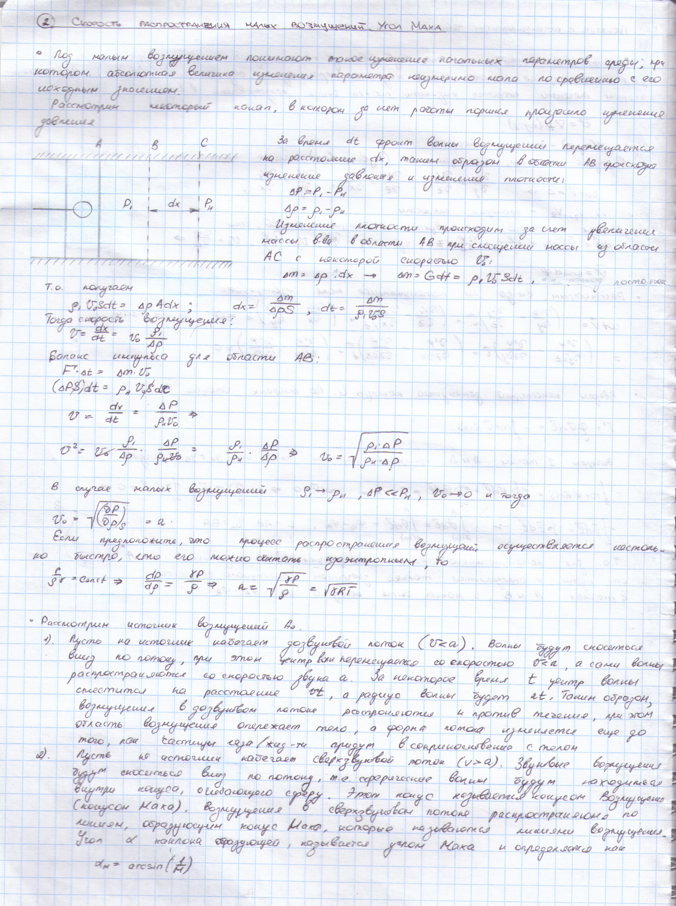 ② Скорость распространения малых возмущений. Угол Маха
• Под малым возмущением понимают такое изменение начальных параметров среды, при
котором абсолютная величина изменения параметра неизмеримо мала по сравнению с его
исходным значением.
Рассмотрим некоторый канал, в котором за счет работы поршня произошло изменение
давления
A B C
P₁ dx Pн
За время dt фронт волны возмущений перемещается
на расстояние dx, таким образом в области AB происходит
изменение давления и изменение плотности:
ΔP = P₁ - Pн
Δρ = ρ₁ - ρн
Изменение плотности происходит за счет увеличения
массы в-ва в области AB при смещении массы из области
AC с некоторой скоростью V₀:
Δm = Δρ · dx → Δm = Gdt = ρ₁V₀Sdt,
Т.о. получаем
ρ₁V₀Sdt = ΔρAdx ; dx = Δm/ΔρS , dt = Δm/ρ₁V₀S
Тогда скорость возмущения:
V = dx/dt = V₀ ρ₁/Δρ
Баланс импульса для области AB:
F · Δt = Δm · V₀
(ΔPS)dt = ρн V₀Sdx
V = dx/dt = ΔP/ρнV₀ ⇒
V² = V₀ · ρ₁/Δρ · ΔP/ρнV₀ = ρ₁/ρн · ΔP/Δρ ⇒ V₀ = √(ρ₁·ΔP/ρн·Δρ)
В случае малых возмущений ρ₁ → ρн , ΔP << Pн , V₀ → 0 и тогда
V₀ = √(∂P/∂ρ)s = a
Если предположить, что процесс распространения возмущений осуществляется настоль-
ко быстро, что его можно считать изоэнтропным, то
P/ργ = const ⇒ dP/dρ = γP/ρ ⇒ a = √(γP/ρ) = √γRT
• Рассмотрим источник возмущений A₀.
1). Пусть на источник набегает дозвуковой поток (V<a). Волны будут сноситься
вниз по потоку, при этом центр волн перемещается со скоростью V<a, а сами волны
распространяются со скоростью звука a. За некоторое время t центр волны
сместится на расстояние Vt, а радиус волны будет at. Таким образом,
возмущения в дозвуковом потоке распространяются и против течения, при этом
область возмущения опережает тело, а форма потока изменяется еще до
того, как частицы газа/жид-ти придут в соприкосновение с телом
2). Пусть на источник набегает сверхзвуковой поток (V>a). Звуковые возмущения
будут сноситься вниз по потоку, т.е. сферические волны будут находиться
внутри конуса, огибающего сферу. Этот конус называется конусом возмущения
(конусом Маха). Возмущения в сверхзвуковом потоке распространяются по
линиям, образующим конус Маха, которые называются линиями возмущения.
Угол α наклона образующей, называется углом Маха и определяется как
αм = arcsin(1/M)